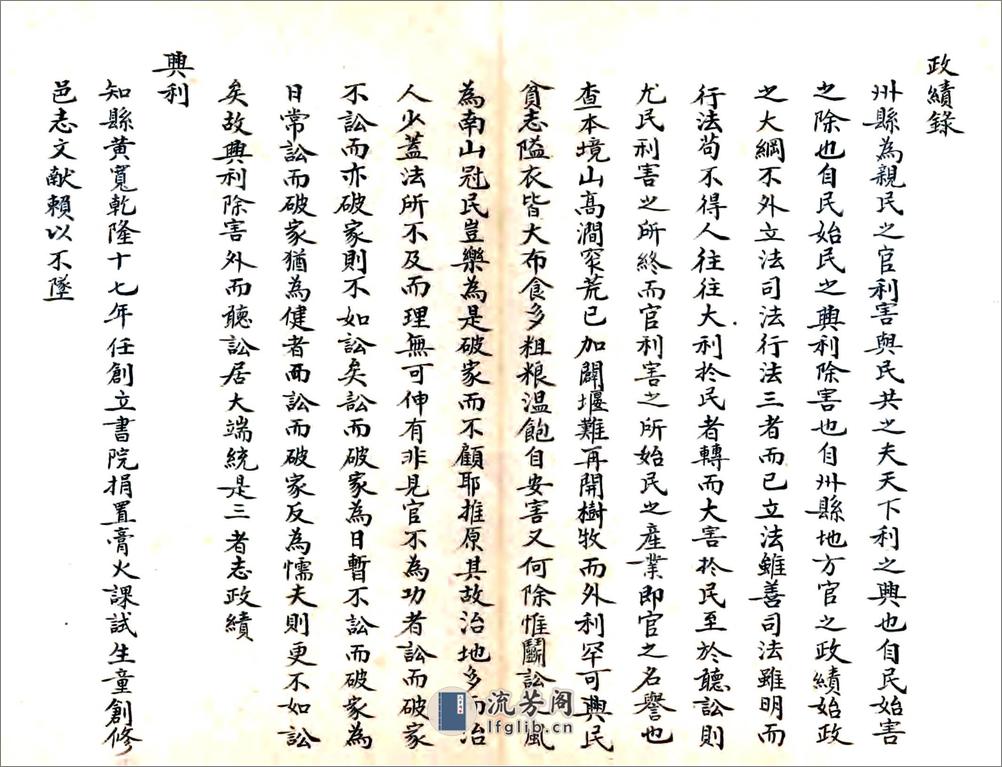 政績錄
州縣為親民之官利害與民共之夫天下利之興也自民始害
之除也自民始民之興利除害也自州縣地方官之政績始政
之大綱不外立法司法行法三者而已立法雖善司法雖明而
行法苟不得人往往大利於民者轉而大害於民至於聽訟則
尤民利害之所終而官利害之所始民之產業即官之名譽也
查本境山高澗窄荒已加闢堰難再開樹牧而外利罕可興民
貧志隘衣皆大布食多粗粮溫飽自安害又何除惟鬭訟
風
為南山冠民豈樂為是破家而不顧耶推原其故治地多而治
人少蓋法所不及而理無可伸有非見官不為功者訟而破家
不訟而亦破家則不如訟矣訟而破家為日暫不訟而破家為
日常訟而破家猶為健者而訟而破家反為懦夫則更不如訟
矣故興利除害外而聽訟居大端統是三者志政績
興利
知縣黃寬乾隆十七年任創立書院捐置膏火課試生童創修
邑志文献賴以不墜
流芳阁
lfglib.cn